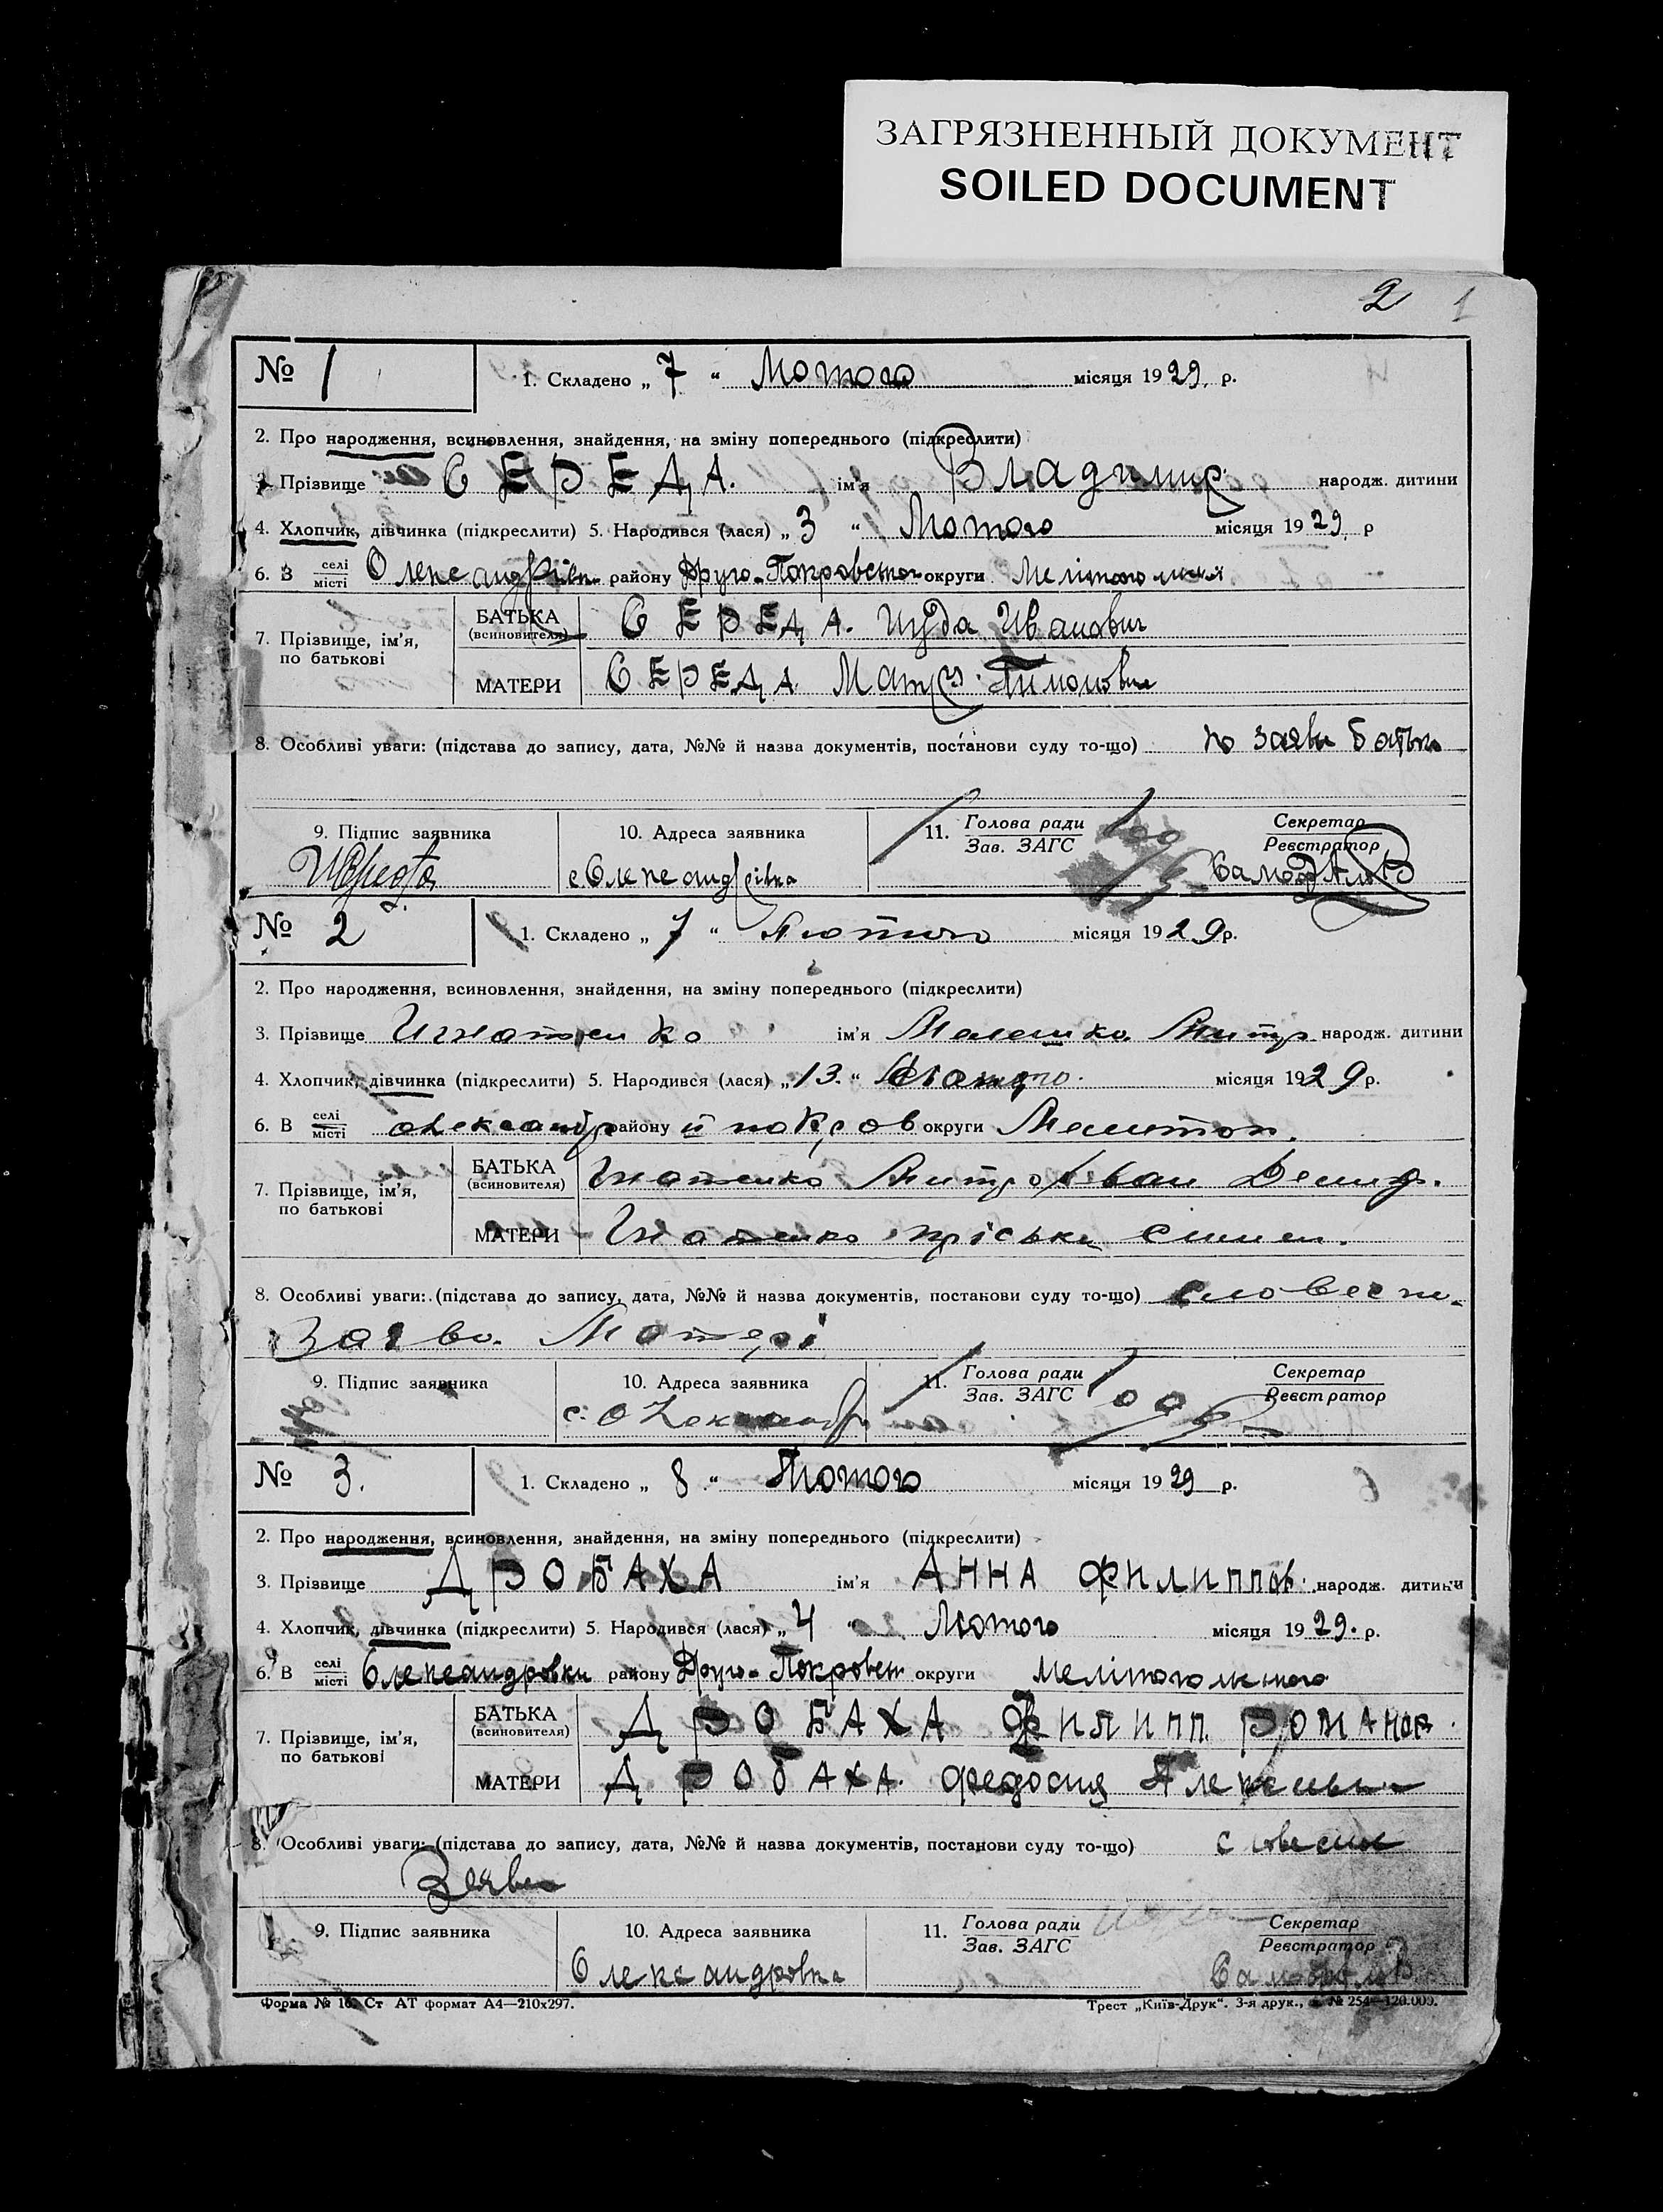 ЗАГРЯЗНЕННЫЙ ДОКУМЕНТ
SOILED DOCUMENT
2 1
№ 1 1. Складено „ 7 “ Лютого місяця 1929 р.
2. Про народження, всиновлення, знайдення, на зміну попереднього (підкреслити)
3. Прізвище СЕРЕДА. ім'я Владимир народж. дитини
4. Хлопчик, дівчинка (підкреслити) 5. Народився (лася) „ 3 “ Лютого місяця 1929 р
6. В селі місті Олександрівк району Друго-Покровського округи
7. Прізвище, ім'я, по батькові
БАТЬКА (всиновителя) СЕРЕДА. Иуда Иванович
МАТЕРИ СЕРЕДА
8. Особливі уваги: (підстава до запису, дата, №№ й назва документів, постанови суду то-що) по заяви батька
9. Підпис заявника 10. Адреса заявника 11. Голова ради Зав. ЗАГС Секретар Реєстратор
с Олександрівка
№ 2 1. Складено „ 7 “ Лютого місяця 1929 р.
2. Про народження, всиновлення, знайдення, на зміну попереднього (підкреслити)
3. Прізвище Игнатенко ім'я народж. дитини
4. Хлопчик, дівчинка (підкреслити) 5. Народився (лася) „ 13. “ місяця 1929 р.
6. В селі місті олександр району II покров округи Мелитоп.
7. Прізвище, ім'я, по батькові
БАТЬКА (всиновителя) Гнатенко
МАТЕРИ Гнатенко пріська
8. Особливі уваги: (підстава до запису, дата, №№ й назва документів, постанови суду то-що) словесн.
Заява Матері
9. Підпис заявника 10. Адреса заявника 11. Голова ради Зав. ЗАГС Секретар Реєстратор
с. Олександр
№ 3. 1. Складено „ 8 “ Лютого місяця 1929 р.
2. Про народження, всиновлення, знайдення, на зміну попереднього (підкреслити)
3. Прізвище ДРОБАХА ім'я АННА ФИЛИППОВ. народж. дитини
4. Хлопчик, дівчинка (підкреслити) 5. Народився (лася) „ 4 “ Лютого місяця 1929. р.
6. В селі місті Олександровки району Друго-Покровськ округи Мелітопольского
7. Прізвище, ім'я, по батькові
БАТЬКА (всиновителя) ДРОБАХА ФИЛИПП. РОМАНОВ.
МАТЕРИ ДРОБАХА. Федосия
8. Особливі уваги: (підстава до запису, дата, №№ й назва документів, постанови суду то-що) словесна
Заява
9. Підпис заявника 10. Адреса заявника 11. Голова ради Зав. ЗАГС Секретар Реєстратор
Олександровка
Форма № 16. Ст АТ формат А4—210x297. Трест „Київ-Друк“. 3-я друк., № 254—120.000.